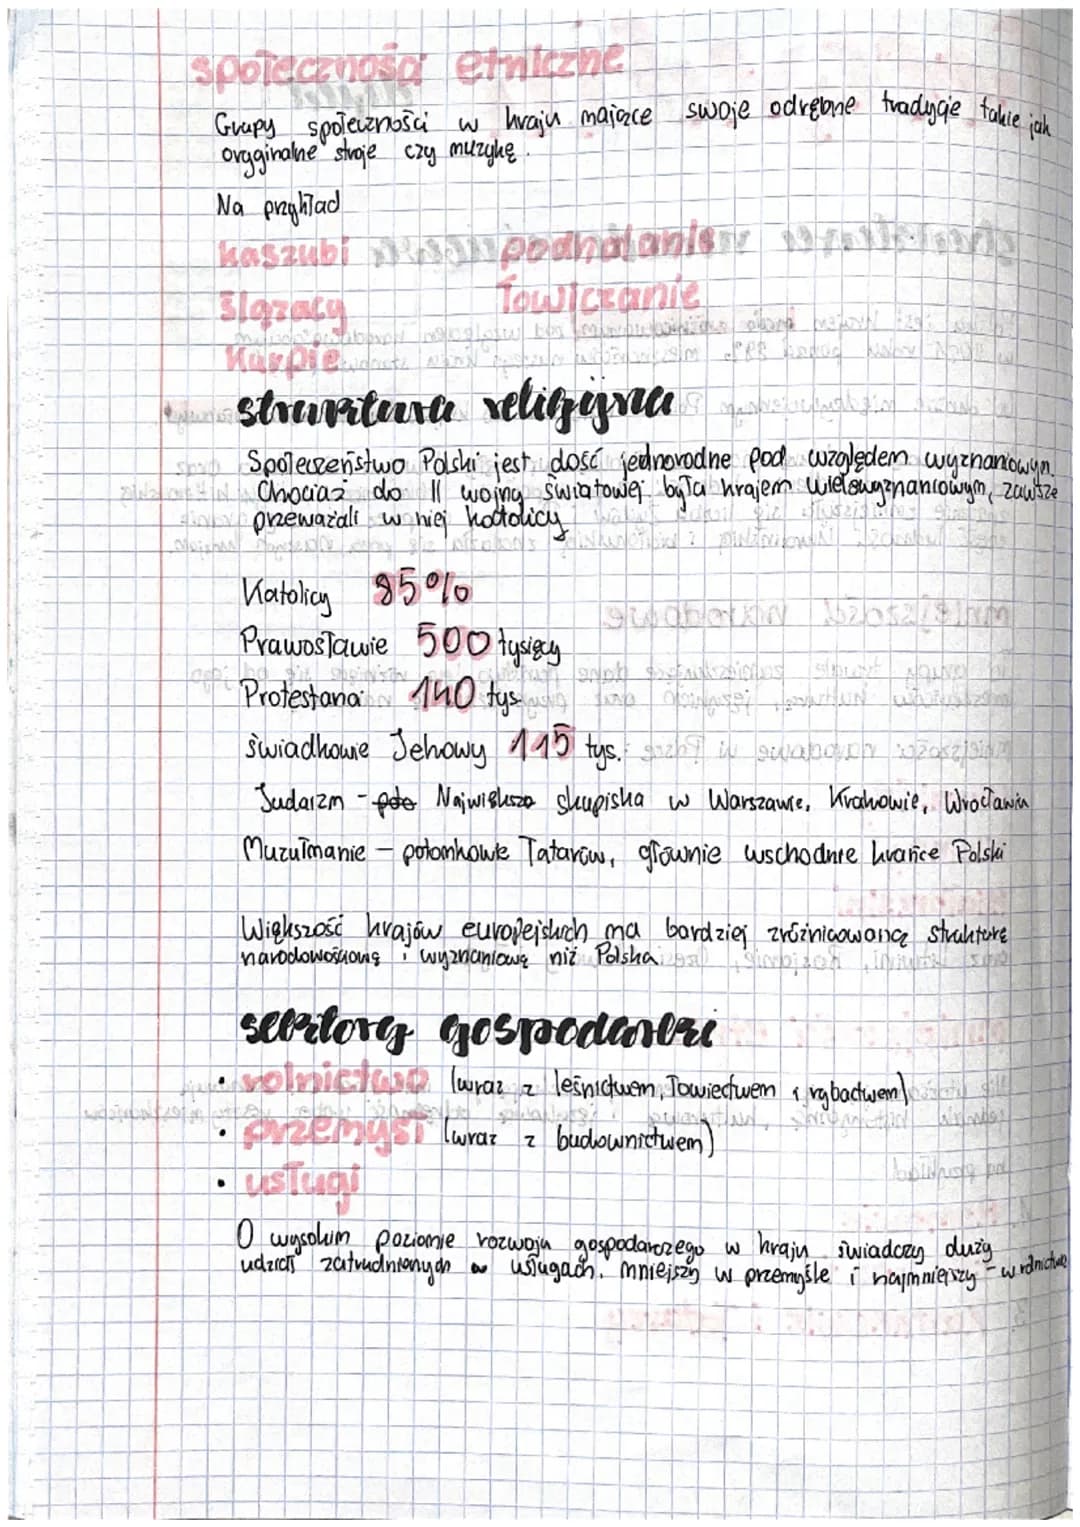 społeczności etniczne
Grupy społeczności w kraju mające swoje odrębne tradycje takie jak
oryginalne stroje czy muzykę.
Na przykład
kaszubi podhalanie
ślązacy Łowiczanie
Kurpie
struktura religijna
Społeczeństwo Polski jest dość jednorodne pod względem wyznaniowym.
Chociaż do II wojny światowej była krajem wielowyznaniowym, zawsze
przeważali w niej katolicy
Katolicy 85%
Prawosławie 500 tysięcy
Protestanci 140 tys.
świadkowie Jehowy 115 tys.
Judaizm - Największe skupiska w Warszawie, Krakowie, Wrocławiu
Muzułmanie – potomkowie Tatarów, głównie wschodnie krańce Polski
Większość krajów europejskich ma bardziej zróżnicowaną strukturę
narodowościową i wyznaniową niż Polska.
sektory gospodarki
• rolnictwo (wraz z leśnictwem, łowiectwem i rybactwem)
• przemysł (wraz z budownictwem)
• usługi
O wysokim poziomie rozwoju gospodarczego w kraju świadczy duży
udział zatrudnionych w usługach, mniejszy w przemyśle i najmniejszy - w rolnictwie